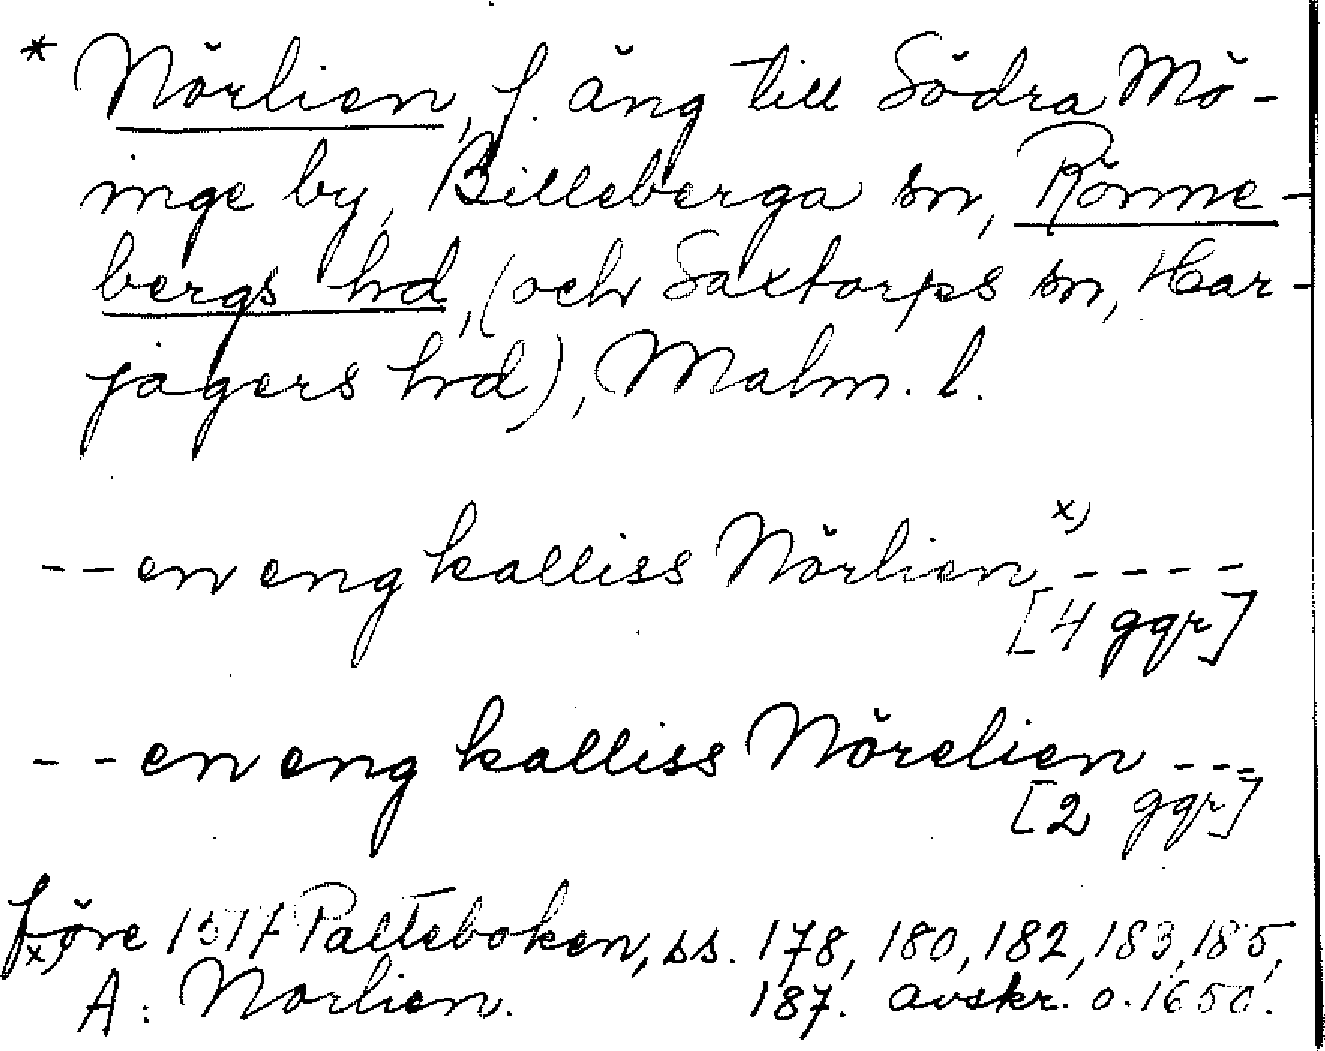 * Nörlien, f. äng till Södra Mö-
inge by, Billeberga sn, Rönne-
bergs hd, (och Saxtorps sn, Har-
jagers hd), Malm. l.
-- en eng kalliss Nörlien x) ----
[4 ggr]
-- en eng kalliss Nörelien ---
[2 ggr]
före 1517 Palteboken, ss. 178, 180, 182, 183, 185,
x) A: Norlien. 187. avskr. o. 1650.